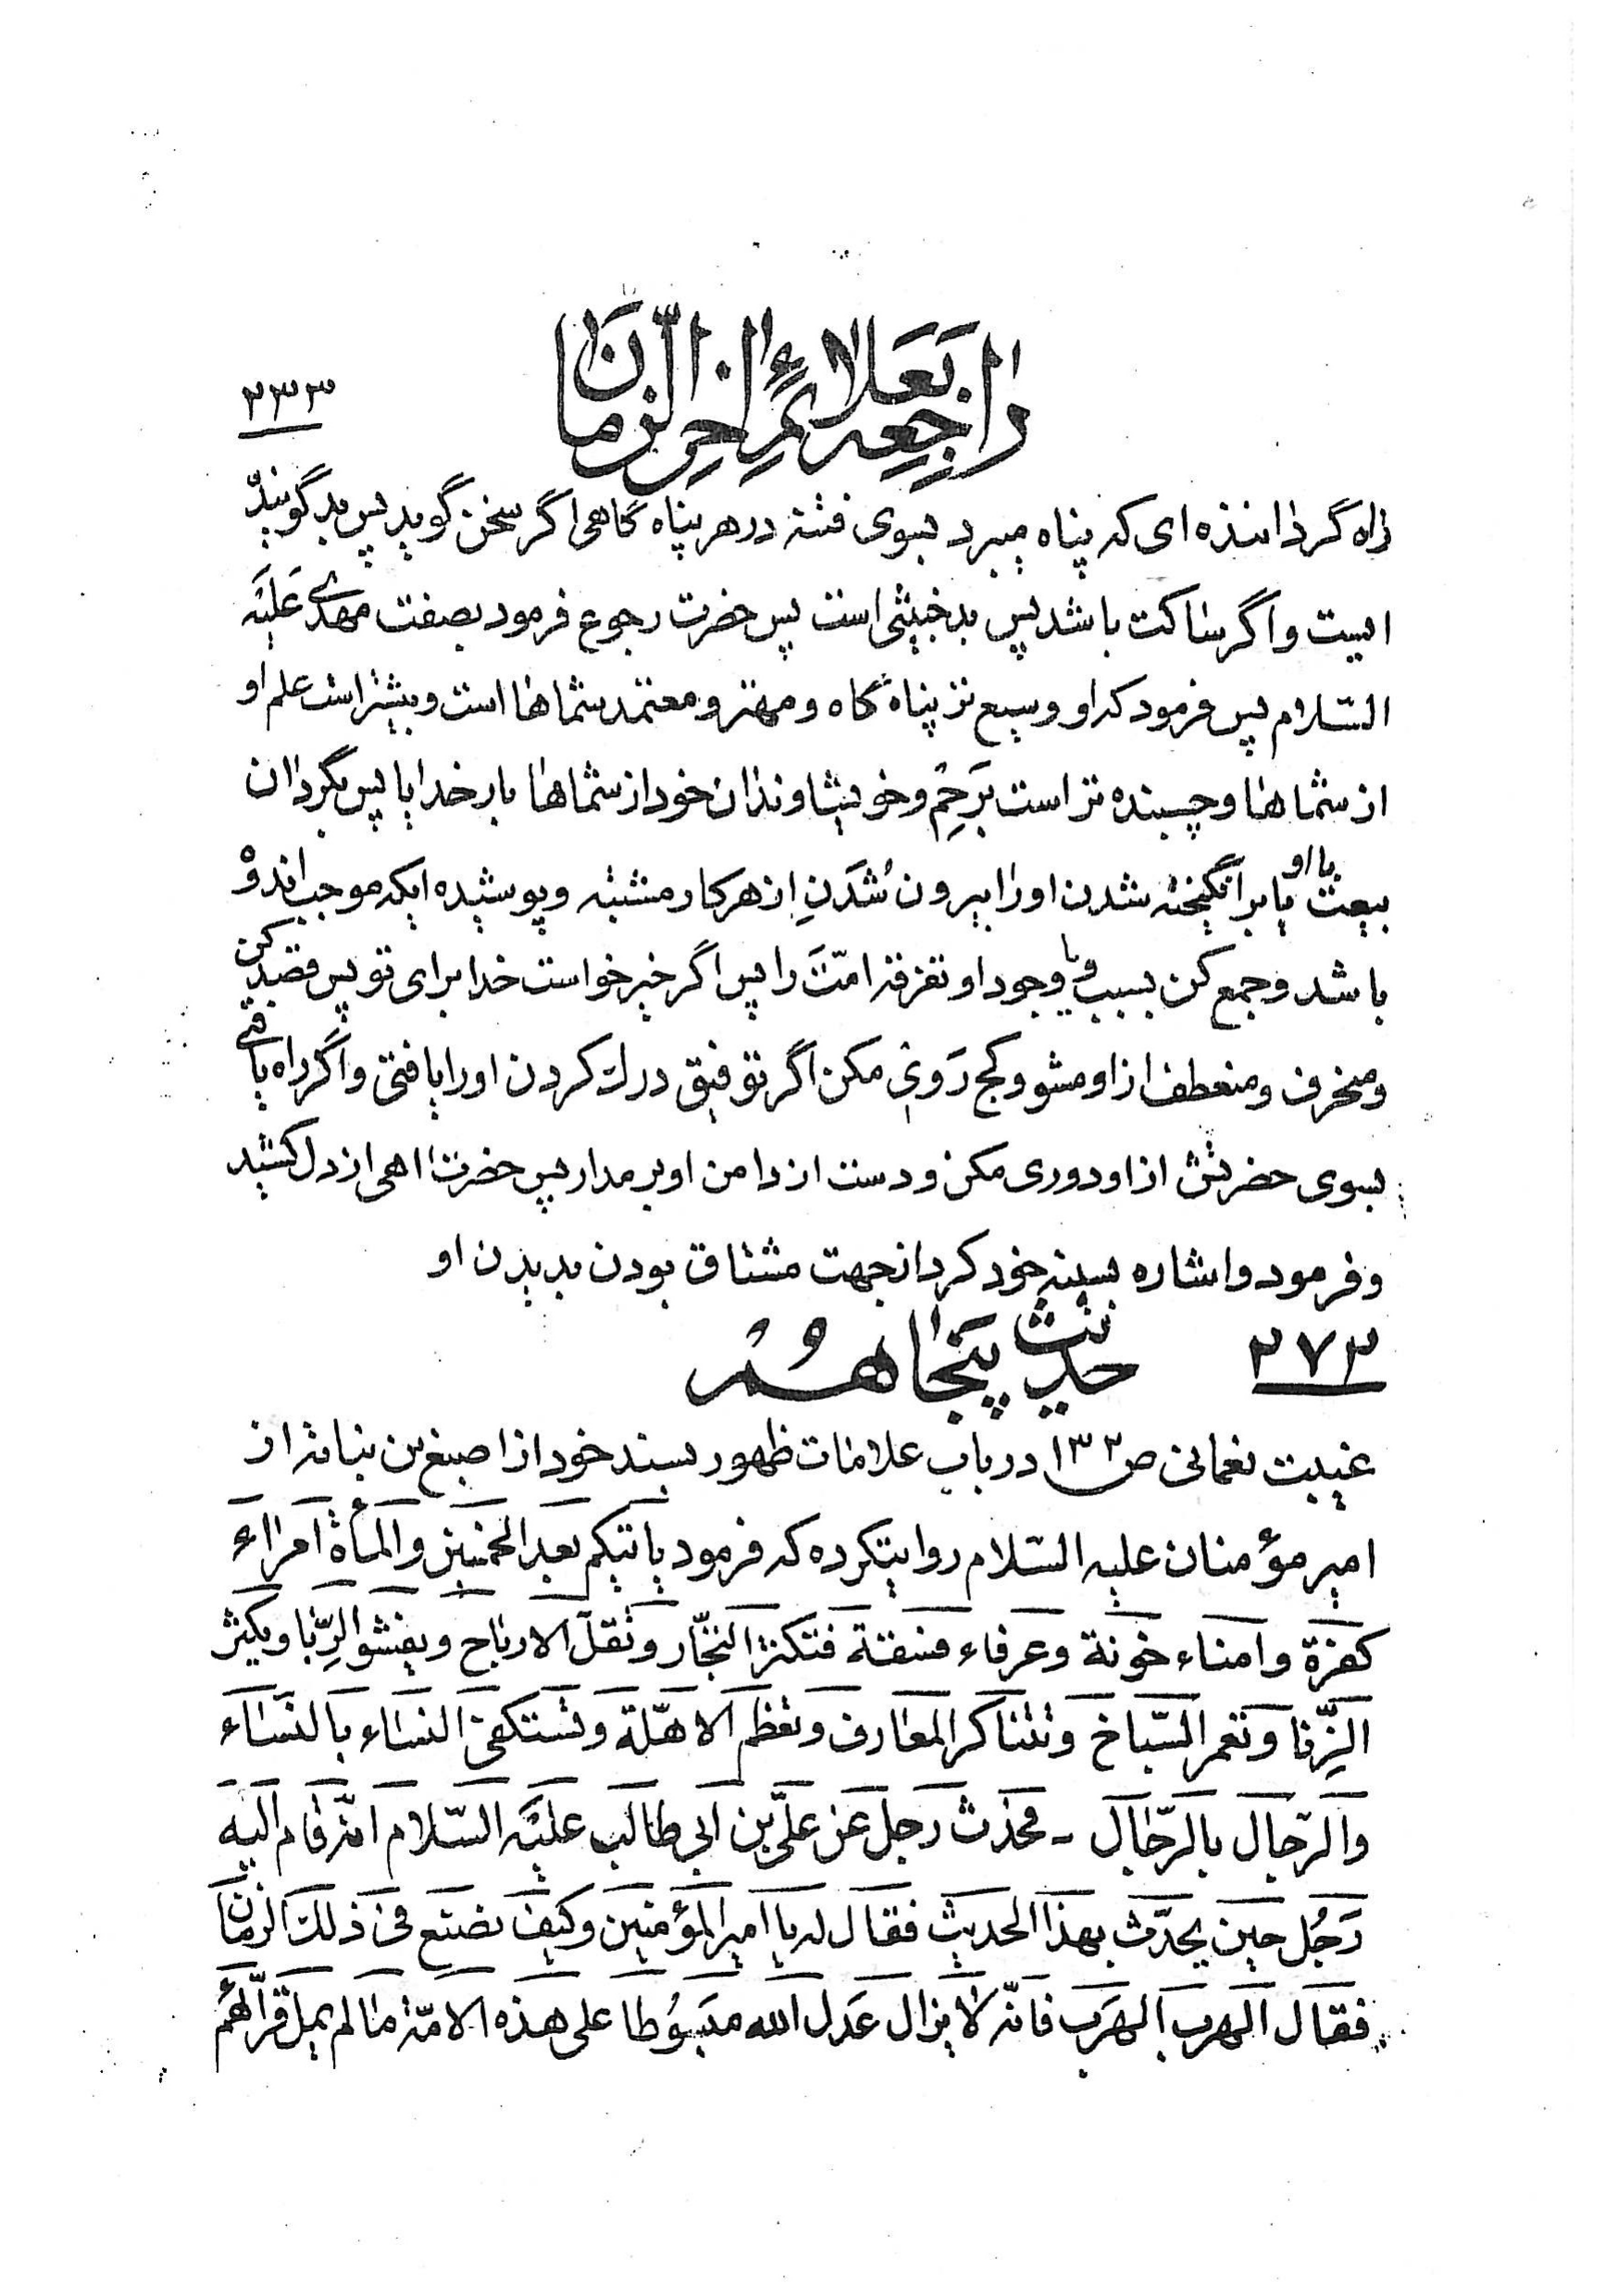 راجعه بعلائم اخر الزمان
۲۳۳
راه گرداننده ای که پناه میبرد بسوی فتنه در هر پناه گاهی اگر سخن گوید پس بد گوینده
ایست و اگر ساکت باشد پس بد خبیثی است پس حضرت رجوع فرمود بصفت مهدی عَلَیْه
السّلام پس فرمود که او وسیع تر پناه گاه و مهتر و معتمد شماها است و بیشتر است علم او
از شماها و چسبنده تر است بَرَحِم و خویشاوندان خود از شماها بار خدایا پس بگردان
بیعت با او یا برانگیخته شدن او را بیرون شُدَنِ از هر کار مشتبه و پوشیده ایکه موجب اندوْه
باشد و جمع کن بسبب او و با وجود او تفرقه امّت را پس اگر خیر خواست خدا برای تو پس قصد کن
و منحرف و منعطف از او مشو و کج رَوی مکن اگر توفیق درک کردن او را یافتی و اگر راه یافتی
بسوی حضرتش از او دوری مکن و دست از دامن او بر مدار پس حضرت اهی از دل کشید
و فرمود و اشاره بسینه خود کرد از جهت مشتاق بودن بدیدن او
۲۷۲ حدیث پنجاهُم
غیبت نعمانی ص ۱۳۲ در باب علامات ظهور بسند خود از اصبغ بن نباته از
امیر مؤمنان علیه السّلام روایتکرده که فرمود یاتیکم بعد الخمسین و المأة امراء
کفرة و امناء خونة و عرفاء فسقة فتکثر التجّار و تقلّ الارباح و یفشو الرِّبا و یکثر
الزِّنا و تغمر السّباخ و تتناکر المعارف و تعظم الاهلّة و تستکفی النساء بالنّساء
و الرّجال بالرّجال - فحدّث رجل عن علیّ بن ابی طالب علیه السّلام انّه قام الیه
رَجُل حین یحدّث بهذا الحدیث فقال له یا امیر المؤمنین و کیف نصنع فی ذلک الزمان
فقال الهرب الهرب فانّه لا یزال عَدل الله مبسُوطا علی هذه الامّة ما لم یمل قرّائهم